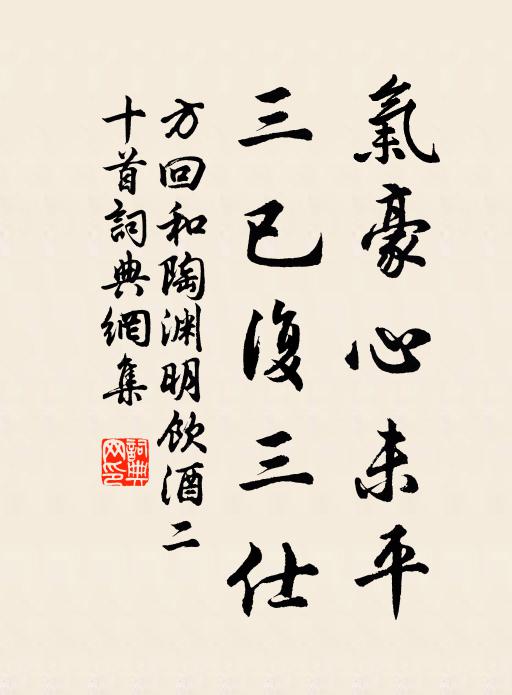 氣豪心未平
三已復三仕
方回和陶淵明飲酒二
十首詞典網集
詞典網印